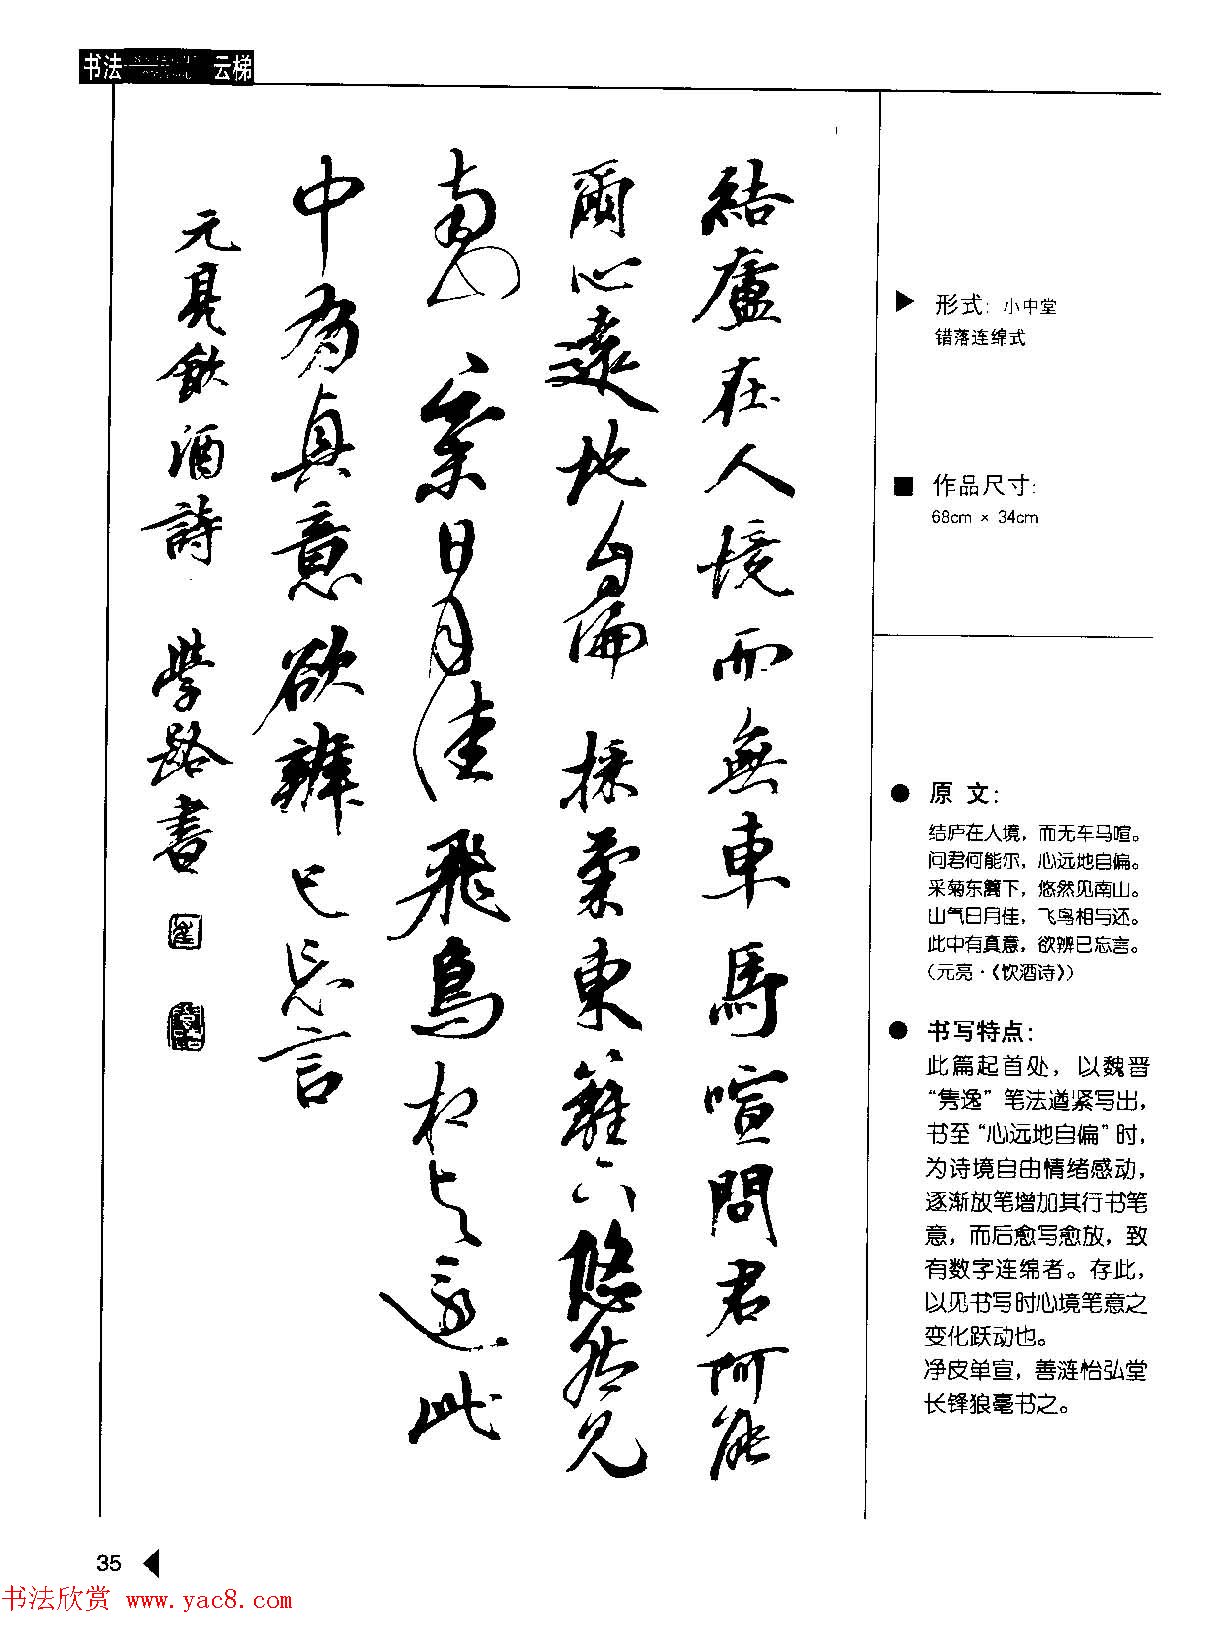 书法 云梯
結廬在人境而無車馬喧問君何能
爾心遠地自偏採菊東籬下悠然見
南山氣日月佳飛鳥相与還此
中有真意欲辨已忘言
元亮飲酒詩 學路書
形式：小中堂
错落连绵式
作品尺寸：
68cm × 34cm
原 文：
结庐在人境，而无车马喧。
问君何能尔，心远地自偏。
采菊东篱下，悠然见南山。
山气日月佳，飞鸟相与还。
此中有真意，欲辨已忘言。
（元亮·《饮酒诗》）
书写特点：
此篇起首处，以魏晋
“隽逸”笔法遒紧写出，
书至“心远地自偏”时，
为诗境自由情绪感动，
逐渐放笔增加其行书笔
意，而后愈写愈放，致
有数字连绵者。存此，
以见书写时心境笔意之
变化跃动也。
净皮单宣，善涟怡弘堂
长锋狼毫书之。
35
书法欣赏 www.yac8.com